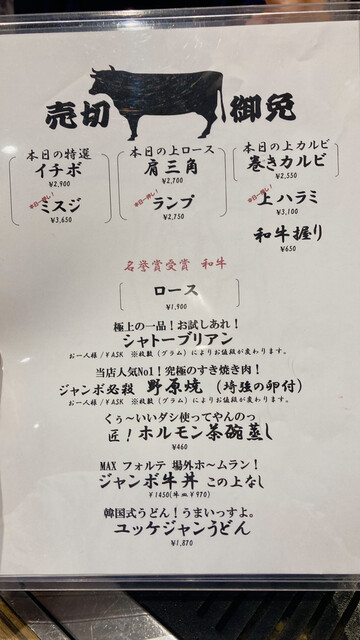 売切 御免
本日の特選
イチボ
¥2,900
本日一押し!
ミスジ
¥3,650
本日の上ロース
肩三角
¥2,700
本日一押し!
ランプ
¥2,750
本日の上カルビ
巻きカルビ
¥2,550
本日一押し!
上ハラミ
¥3,100
和牛握り
¥650
名誉賞受賞 和牛
ロース
¥1,900
極上の一品!お試しあれ!
シャトーブリアン
お一人様/¥ASK ※枚数(グラム)によりお値段が変わります。
当店人気No1!究極のすき焼き肉!
ジャンボ必殺 野原焼(埼強の卵付)
お一人様/¥ASK ※枚数(グラム)によりお値段が変わります。
くぅ~いいダシ使ってやんのっ
匠!ホルモン茶碗蒸し
¥460
MAX フォルテ 場外ホ~ムラン!
ジャンボ牛丼 この上なし
¥1450(牛皿¥970)
韓国式うどん!うまいっすよ。
ユッケジャンうどん
¥1,870